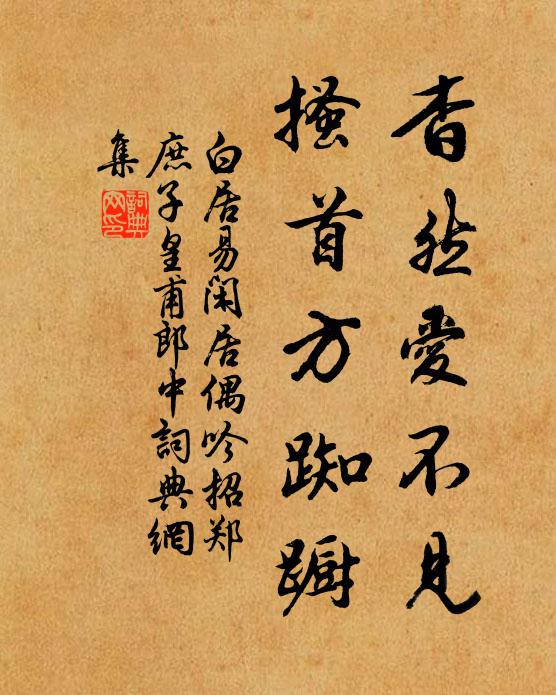 杳然愛不見
搔首方踟蹰
白居易閑居偶吟招郑
庶子皇甫郎中詞典網
集
詞典
网印